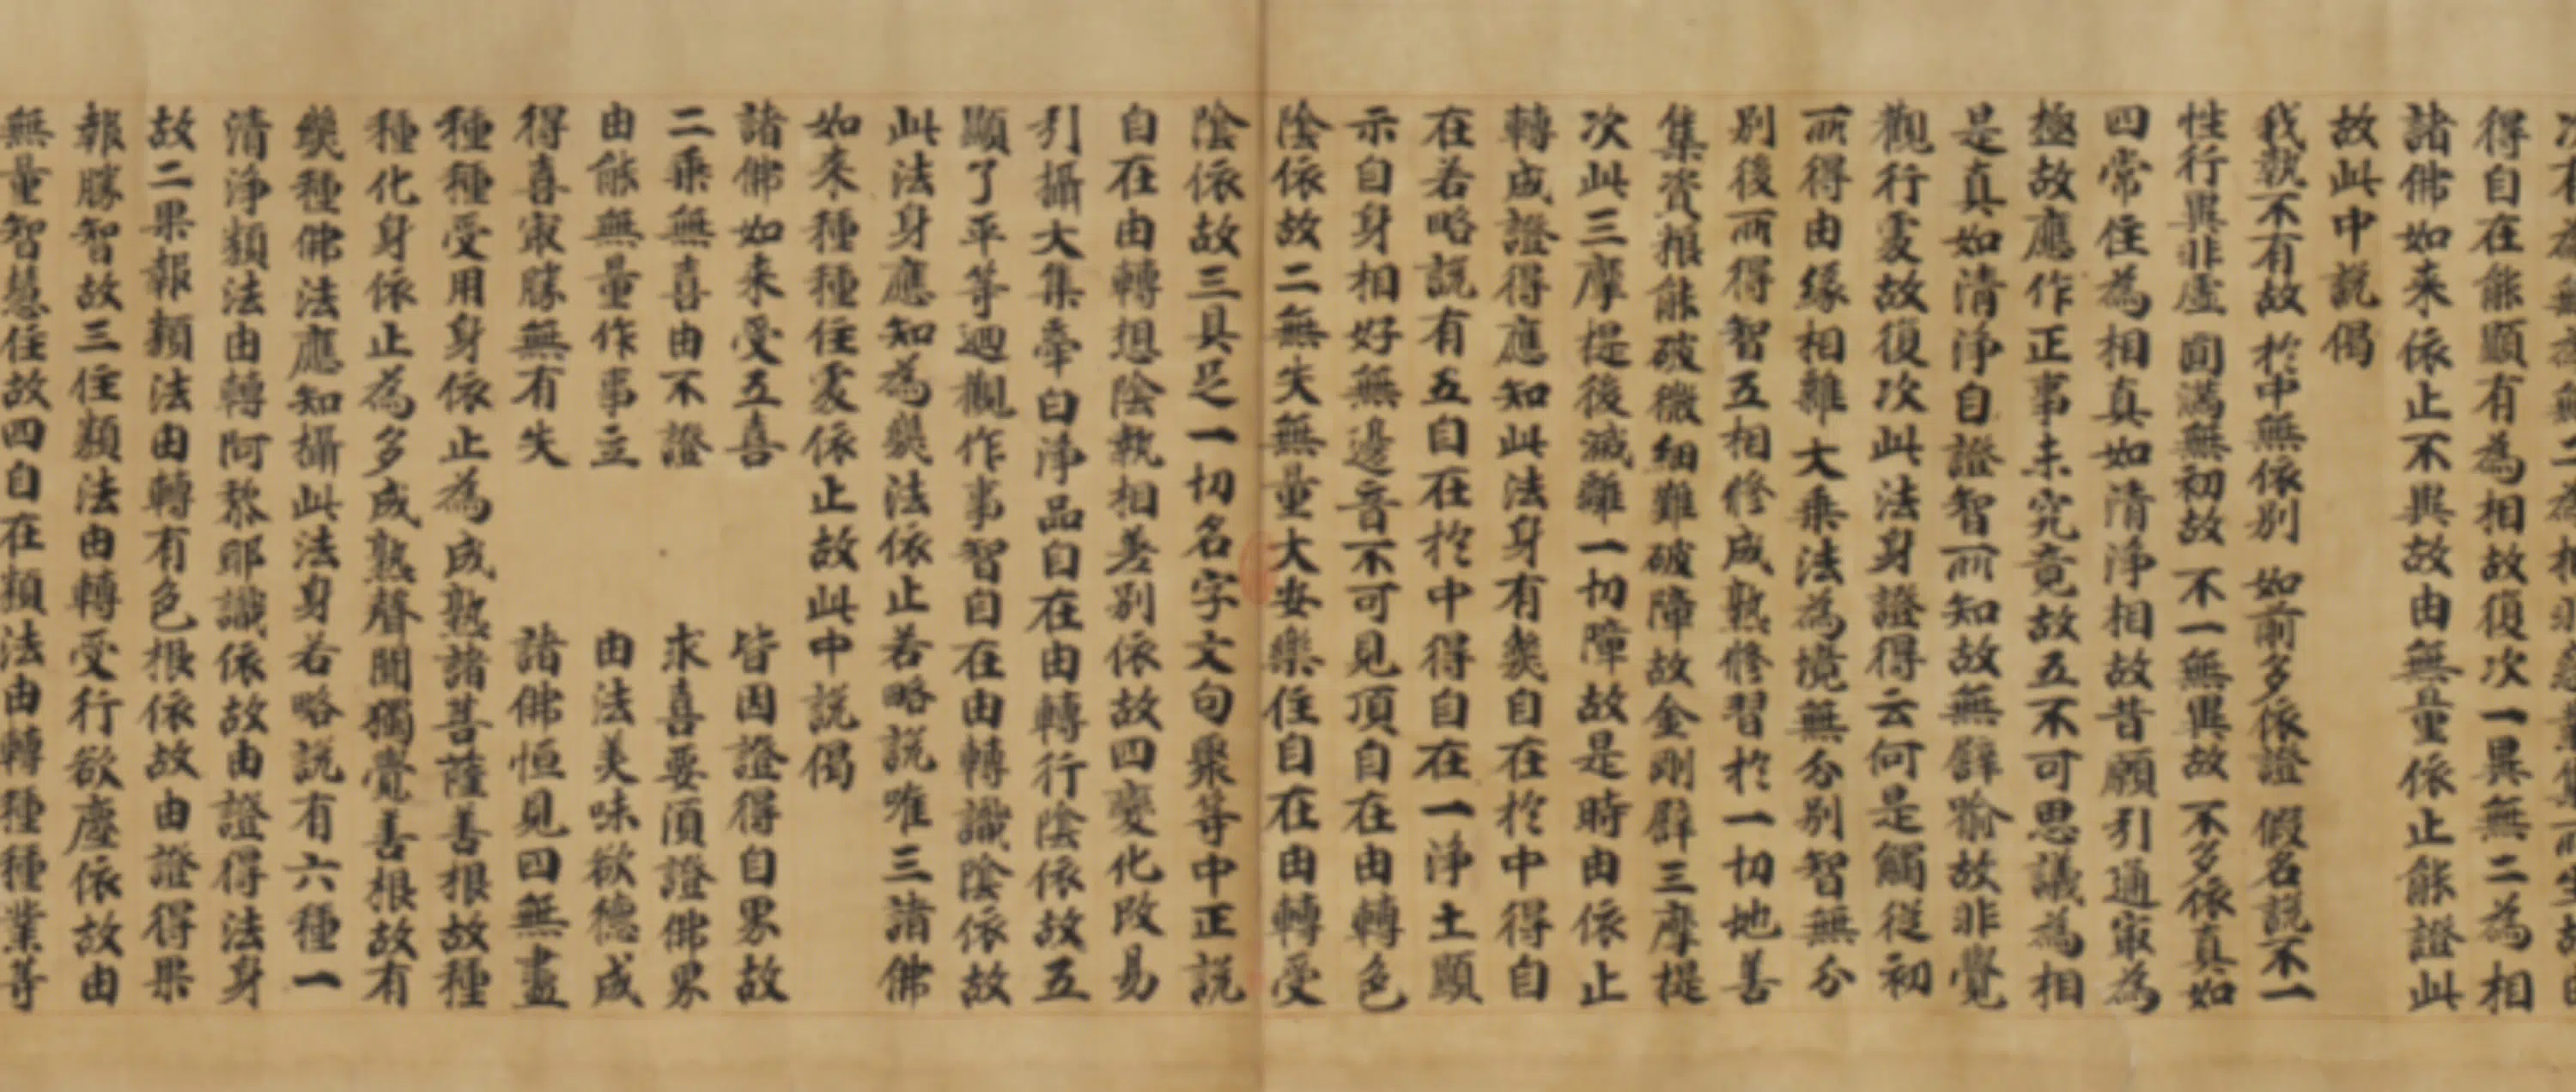 得自在能顯有為相故復次一異無二為相
諸佛如來依止不異故由無量依止能證此
故此中說偈
我執不有故 於中無依別 如前多依證 假名說不一
性行異非虛 圓滿無初故 不一無異故 不多依真如
四常住為相真如清淨相故昔願引通冣為
極故應作正事未究竟故五不可思議為相
是真如清淨自證智所知故無譬喻故非覺
觀行處故復次此法身證得云何是觸從初
所得由緣相離大乘法為境無分別智無分
別後所得智五相修成熟修習於一切地善
集資粮能破微細難破障故金剛譬三摩提
次此三摩提後滅離一切障故是時由依止
轉成證得應知此法身有幾自在於中得自
在若略說有五自在於中得自在一淨土顯
示自身相好無邊音不可見頂自在由轉色
陰依故二無失無量大安樂住自在由轉受
陰依故三具足一切名字文句聚等中正說
自在由轉想陰執相差別依故四變化改易
引攝大集牽白淨品自在由轉行陰依故五
顯了平等迴觀作事智自在由轉識陰依故
此法身應知為幾法依止若略說唯三諸佛
如來種種住處依止故此中說偈
諸佛如來受五喜 皆因證得自界故
二乘無喜由不證 求喜要須證佛界
由能無量作事立 由法美味欲德成
得喜冣勝無有失 諸佛恒見四無盡
種種受用身依止為成熟諸菩薩善根故種
種化身依止為多成熟聲聞獨覺善根故有
幾種佛法應知攝此法身若略說有六種一
清淨類法由轉阿黎耶識依故由證得法身
故二果報類法由轉有色根依故由證得果
報勝智故三住類法由轉受行欲塵依故由
無量智慧住故四自在類法由轉種種業等